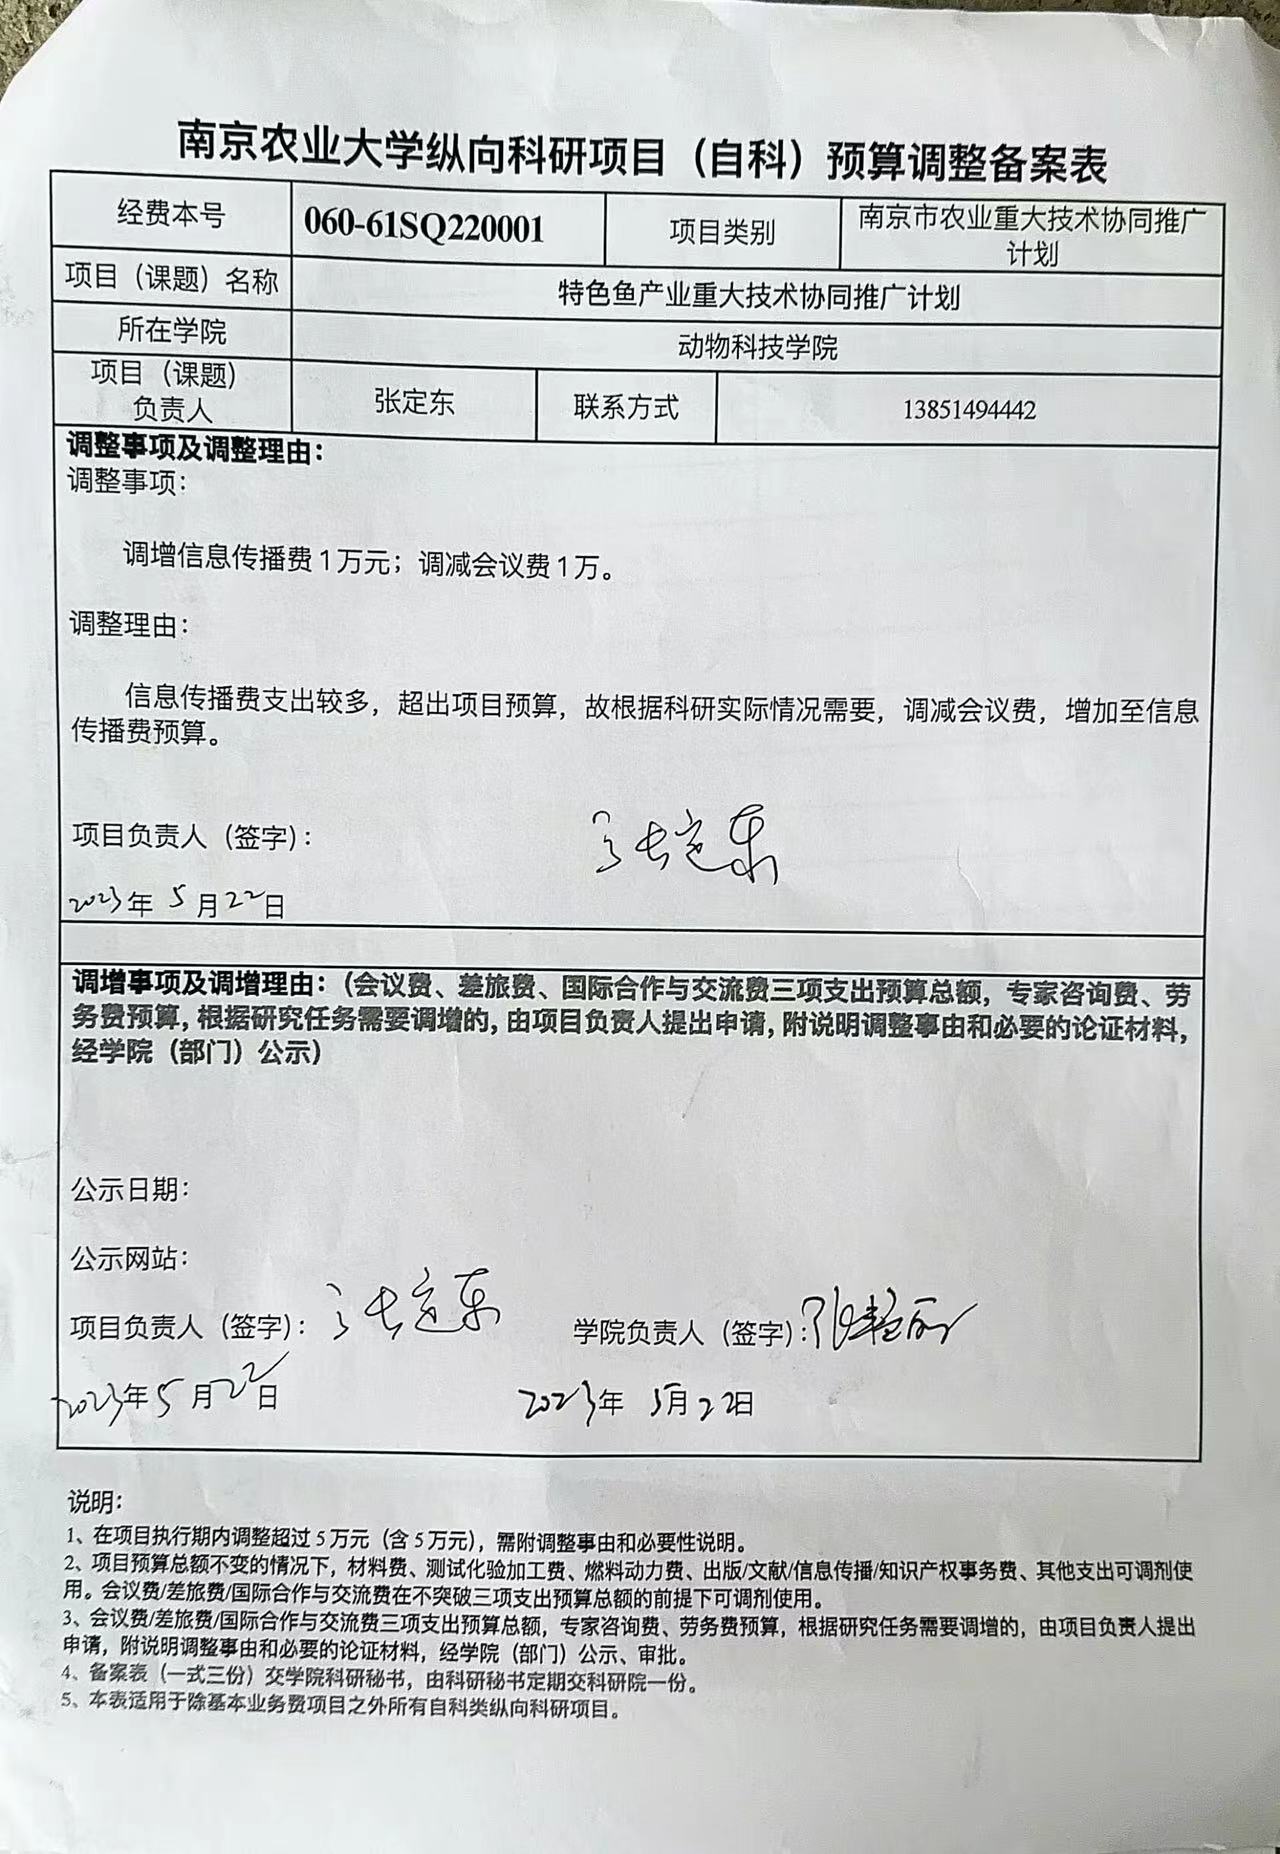 南京农业大学纵向科研项目（自科）预算调整备案表
经费本号 060-61SQ220001 项目类别 南京市农业重大技术协同推广
计划
项目（课题）名称 特色鱼产业重大技术协同推广计划
所在学院 动物科技学院
项目（课题）
负责人 张定东 联系方式 13851494442
调整事项及调整理由：
调整事项：
调增信息传播费1万元；调减会议费1万。
调整理由：
信息传播费支出较多，超出项目预算，故根据科研实际情况需要，调减会议费，增加至信息
传播费预算。
项目负责人（签字）： 张定东
2023年 5月22日
调增事项及调增理由：（会议费、差旅费、国际合作与交流费三项支出预算总额，专家咨询费、劳
务费预算，根据研究任务需要调增的，由项目负责人提出申请，附说明调整事由和必要的论证材料，
经学院（部门）公示）
公示日期：
公示网站：
项目负责人（签字）： 张定东 学院负责人（签字）：
2023年5月22日 2023年 5月22日
说明：
1、在项目执行期内调整超过5万元（含5万元），需附调整事由和必要性说明。
2、项目预算总额不变的情况下，材料费、测试化验加工费、燃料动力费、出版/文献/信息传播/知识产权事务费、其他支出可调剂使
用。会议费/差旅费/国际合作与交流费在不突破三项支出预算总额的前提下可调剂使用。
3、会议费/差旅费/国际合作与交流费三项支出预算总额，专家咨询费、劳务费预算，根据研究任务需要调增的，由项目负责人提出
申请，附说明调整事由和必要的论证材料，经学院（部门）公示、审批。
4、备案表（一式三份）交学院科研秘书，由科研秘书定期交科研院一份。
5、本表适用于除基本业务费项目之外所有自科类纵向科研项目。